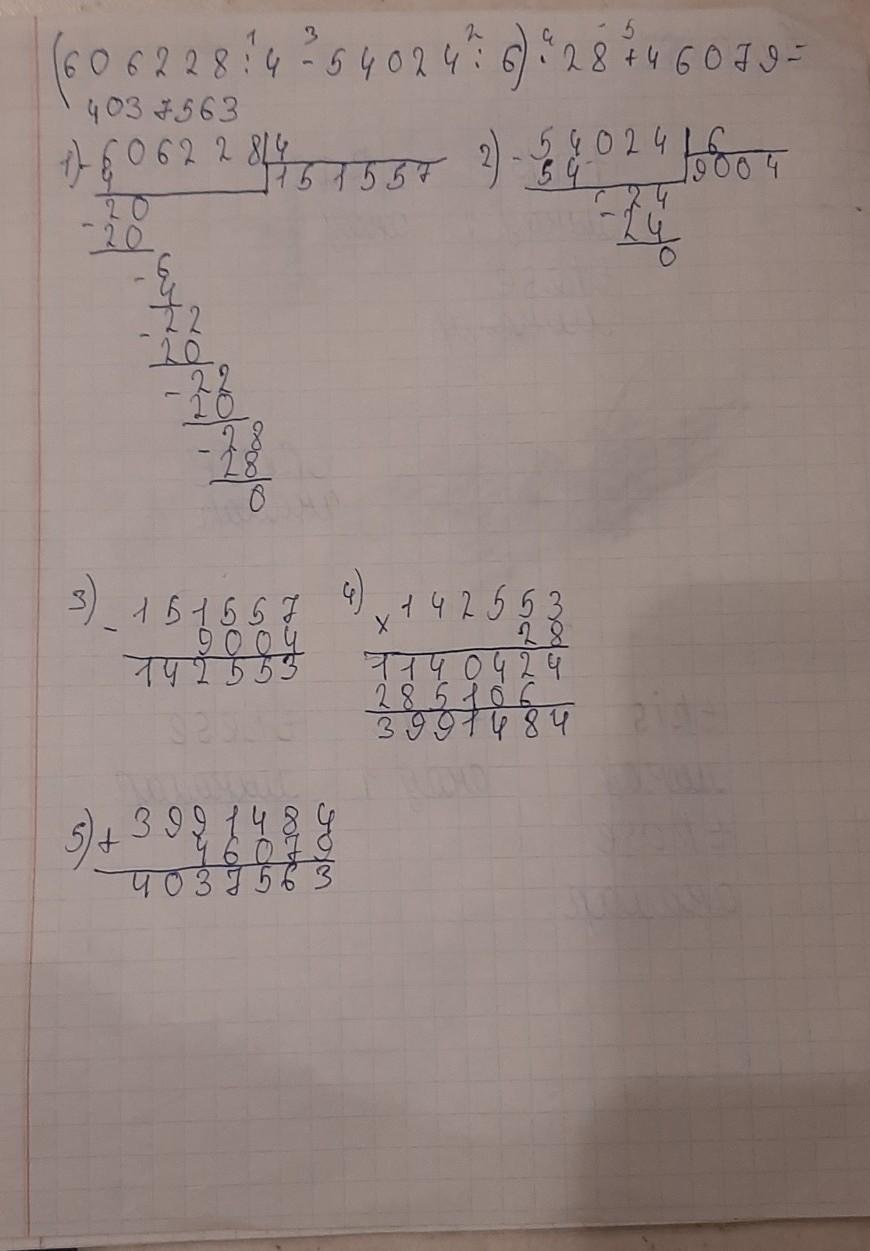 (606228:4-54024:6)·28+46079=
4037563
1) -606228|4
4 151557
-20
20
-6
4
-22
20
-22
20
-28
28
0
2) -54024|6
54 9004
-24
24
0
3) -151557
9004
142553
4) ×142553
28
1140424
285106
3991484
5) +3991484
46079
4037563